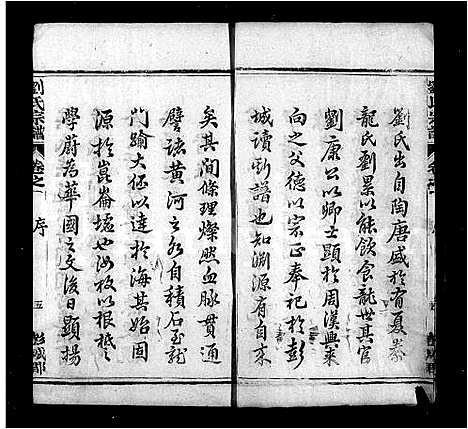 劉氏宗譜
卷之一
序
彭城郡
劉氏出自陶唐盛於有夏豢
龍氏劉累以能飲食龍世其官
劉康公以卿士顯於周漢興楽
向之父德以宗正奉祀於彭
城讀斯譜也知淵源有自来
矣其間條理燦然血脉貫通
譬諸黄河之水自積石至龍
門踰大伾以達於海其始固
源於崑崙墟也汝故以根柢之
學蔚為華國之文後日顯揚
劉氏宗譜
卷之一
序
五
彭城郡